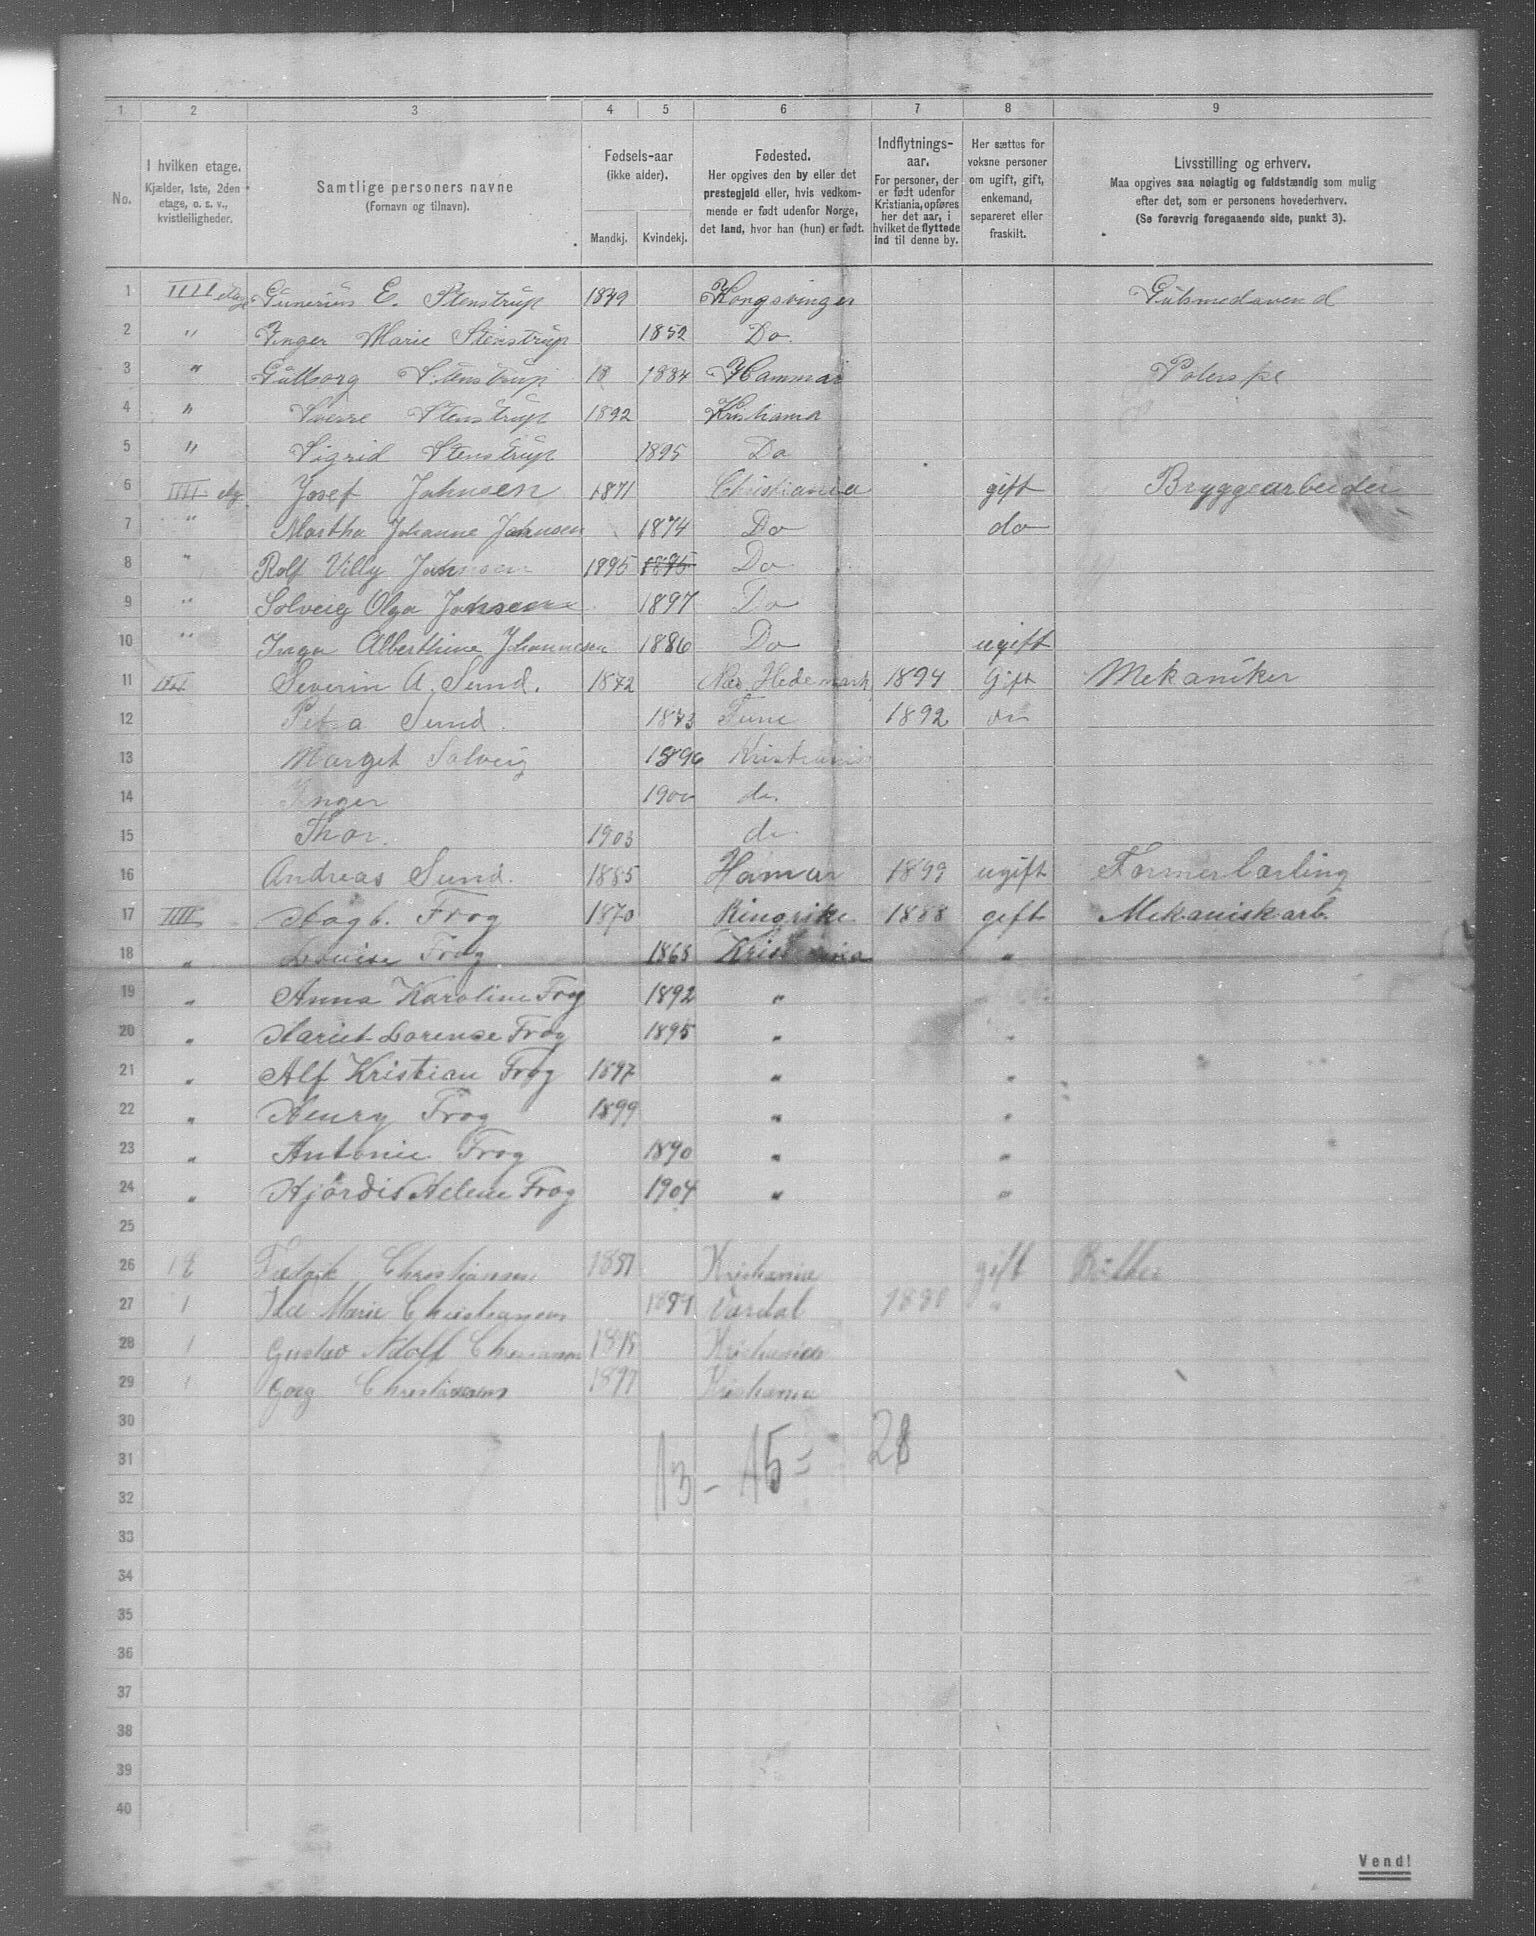 1 2 3 4 5 6 7 8 9
No. I hvilken etage. Kjælder, 1ste, 2den etage, o. s. v., kvistleiligheder. Samtlige personers navne (Fornavn og tilnavn). Fødsels-aar (ikke alder). Mandkj. Kvindekj. Fødested. Her opgives den by eller det prestegjeld eller, hvis vedkommende er født udenfor Norge, det land, hvor han (hun) er født. Indflytnings-aar. For personer, der er født udenfor Kristiania, opføres her det aar, i hvilket de flyttede ind til denne by. Her sættes for voksne personer om ugift, gift, enkemand, separeret eller fraskilt. Livsstilling og erhverv. Maa opgives saa nøiagtig og fuldstændig som mulig efter det, som er personens hovederhverv. (Se forøvrig foregaaende side, punkt 3).
1 IIII etage Gunerius E. Stenstrup 1849 Kongsvinger Gulsmedsvend
2 " Inger Marie Stenstrup 1852 Do.
3 " Gulborg Stenstrup 18 1884 Hammar Polerske
4 " Sverre Stenstrup 1892 Kristiania
5 " Sigrid Stenstrup 1895 Do
6 IIII etg. Josef Johnsen 1871 Christiania gift Bryggearbeider
7 " Martha Johanne Johnsen 1874 Do do
8 " Rolf Villy Johnsen 1895 1895 Do
9 " Solveig Olga Johnsen 1897 Do
10 " Inga Alberthine Johannesen 1886 Do ugift
11 III Severin A. Sund. 1872 Nes Hedemark 1894 Gift Mekaniker
12 Petra Sund. 1873 Tune 1892 do
13 Marget Solveig 1896 Kristiania
14 Inger 1900 do.
15 Thor. 1903 do
16 Andreas Sund. 1885 Hamar 1899 ugift Formerlærling
17 IIII Hagb. Frog 1870 Ringrike 1888 gift Mekaniskarb.
18 " Lovise Frog 1868 Kristiania "
19 " Anna Karoline Frog 1892 "
20 " Hariet Lorense Frog 1895 " "
21 " Alf Kristian Frog 1897 " "
22 " Henry Frog 1899 " "
23 " Antonie Frog 1890 " "
24 " Hjördis Helene Frog 1904 " "
25
26 1 E Fredrik Christiansen 1857 Kristiania gift
27 1 Marie Christiansen Vardal 1880 "
28 1 Gustav Adolf Christiansen Kristiania
29 1 Christiansen 1897 Kristiania
30
31 13 - 15 = 28
32
33
34
35
36
37
38
39
40
Vend!